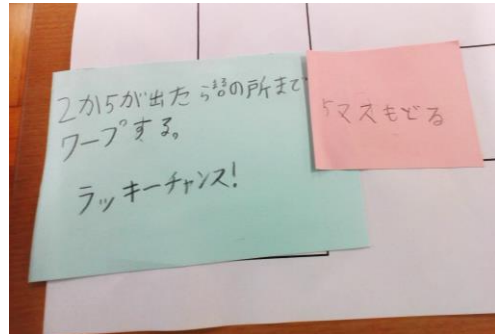 2か5が出たら の所まで
ワープする。
ラッキーチャンス!
5マスもどる